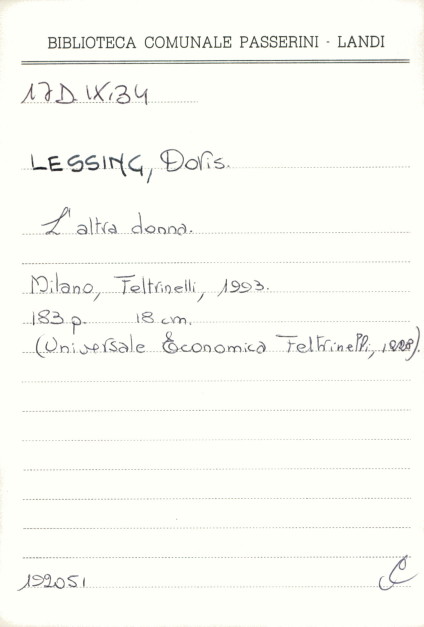 BIBLIOTECA COMUNALE PASSERINI - LANDI
17D.IX.34
LESSING, Doris.
L'altra donna.
Milano, Feltrinelli, 1993.
183 p. 18 cm.
(Universale Economica Feltrinelli,
192051
C